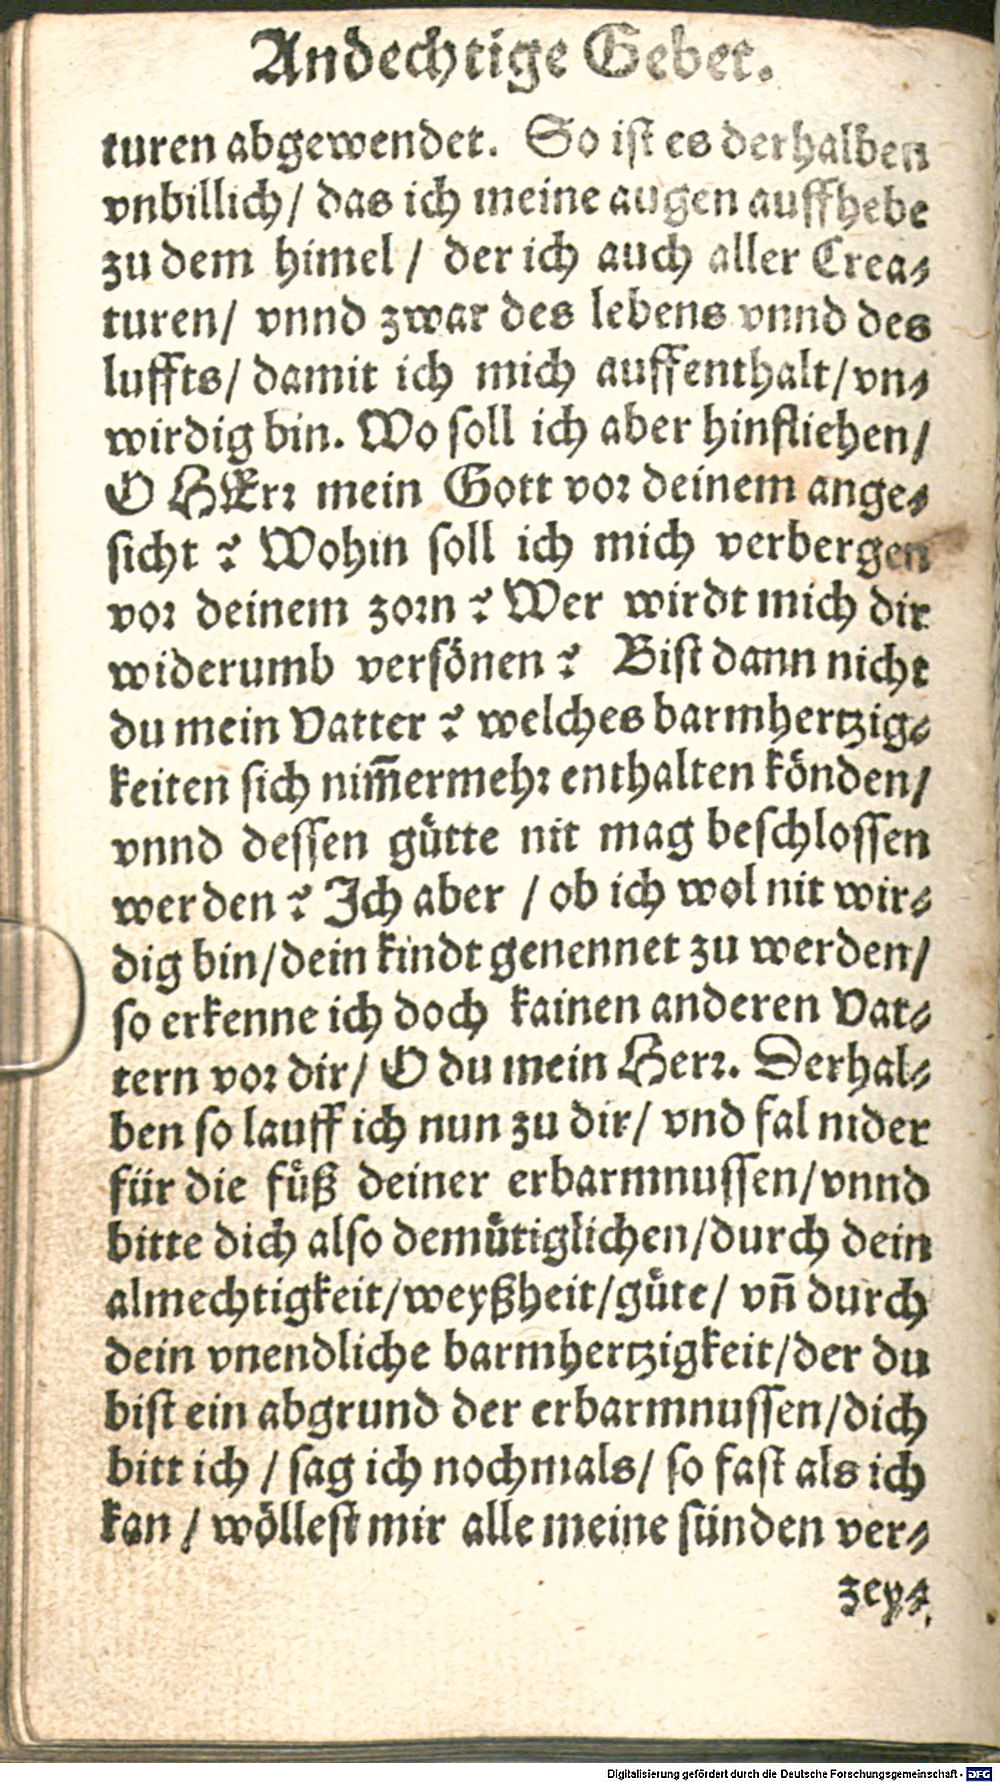 Andechtige Gebet.
turen abgewendet. So ist es derhalben
vnbillich/ das ich meine augen auffhebe
zu dem himel / der ich auch aller Crea⸗
turen/ vnnd zwar des lebens vnnd des
luffts/ damit ich mich auffenthalt/ vn⸗
wirdig bin. Wo soll ich aber hinfliehen/
O HErr mein Gott vor deinem ange⸗
sicht ? Wohin soll ich mich verbergen
vor deinem zorn ? Wer wirdt mich dir
widerumb versönen ? Bist dann nicht
du mein Vatter ? welches barmhertzig⸗
keiten sich nim̄ermehr enthalten könden/
vnnd dessen gütte nit mag beschlossen
werden ? Ich aber / ob ich wol nit wir⸗
dig bin/ dein kindt genennet zu werden/
so erkenne ich doch kainen anderen Vat⸗
tern vor dir/ O du mein Herr. Derhal⸗
ben so lauff ich nun zu dir/ vnd fal nider
für die füß deiner erbarmnussen/ vnnd
bitte dich also demütiglichen/ durch dein
almechtigkeit/ weyßheit/ güte/ vn̄ durch
dein vnendliche barmhertzigkeit/ der du
bist ein abgrund der erbarmnussen/ dich
bitt ich / sag ich nochmals/ so fast als ich
kan / wöllest mir alle meine sünden ver⸗
zey⸗
Digitalisierung gefördert durch die Deutsche Forschungsgemeinschaft - DFG